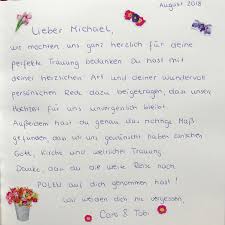 August 2018
Lieber Michael,
wir möchten uns ganz herzlich für deine
perfekte Trauung bedanken. Du hast mit
deiner herzlichen Art und deiner wundervoll
persönlichen Rede dazu beigetragen, dass unsere
Hochzeit für uns unvergesslich bleibt.
Außerdem hast du genau das richtige Maß
gefunden, das wir uns gewünscht haben zwischen
Gott, Kirche und weltlicher Trauung.
Danke, dass du die weite Reise nach
POLEN auf dich genommen hast!
Wir werden dich nie vergessen,
Caro & Tobi